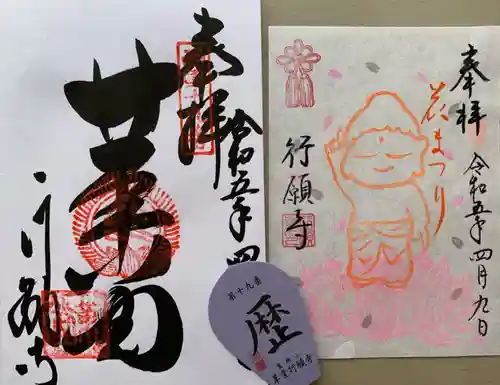 奉拝
令和五年四
革堂
行願寺
奉拝
花まつり
令和五年四月九日
行願寺
第十九番
歴
革堂行願寺